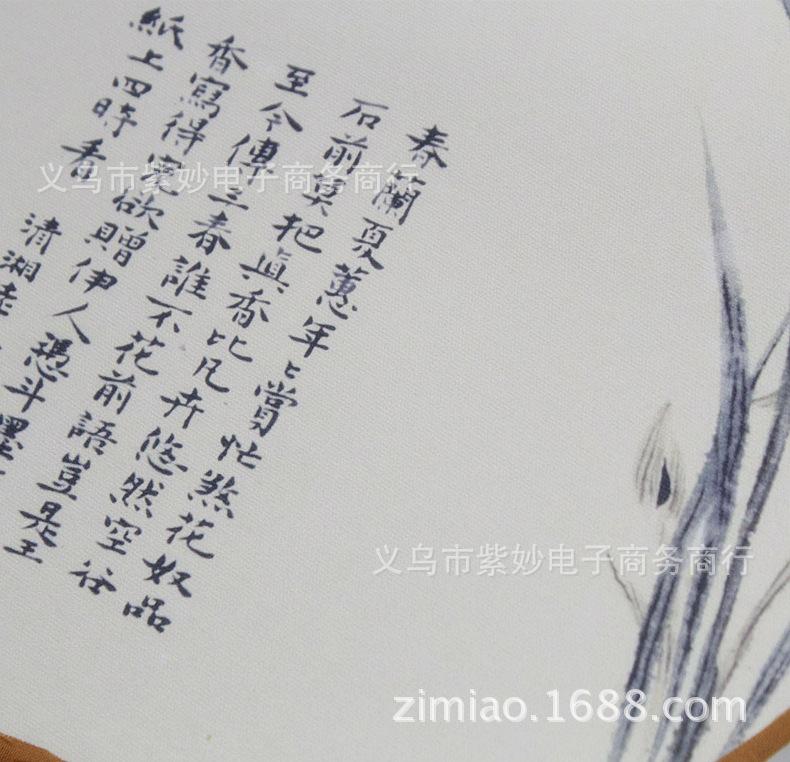 春蘭夏蕙年々賞忙煞花奴品
石前莫把真香比凡卉悠然空谷
至今傳三春誰不花前語豈是王
香寫得欲贈伊人憑斗墨
紙上四時看
清湘老
义乌市紫妙电子商务商行
义乌市紫妙电子商务商行
zimiao.1688.com